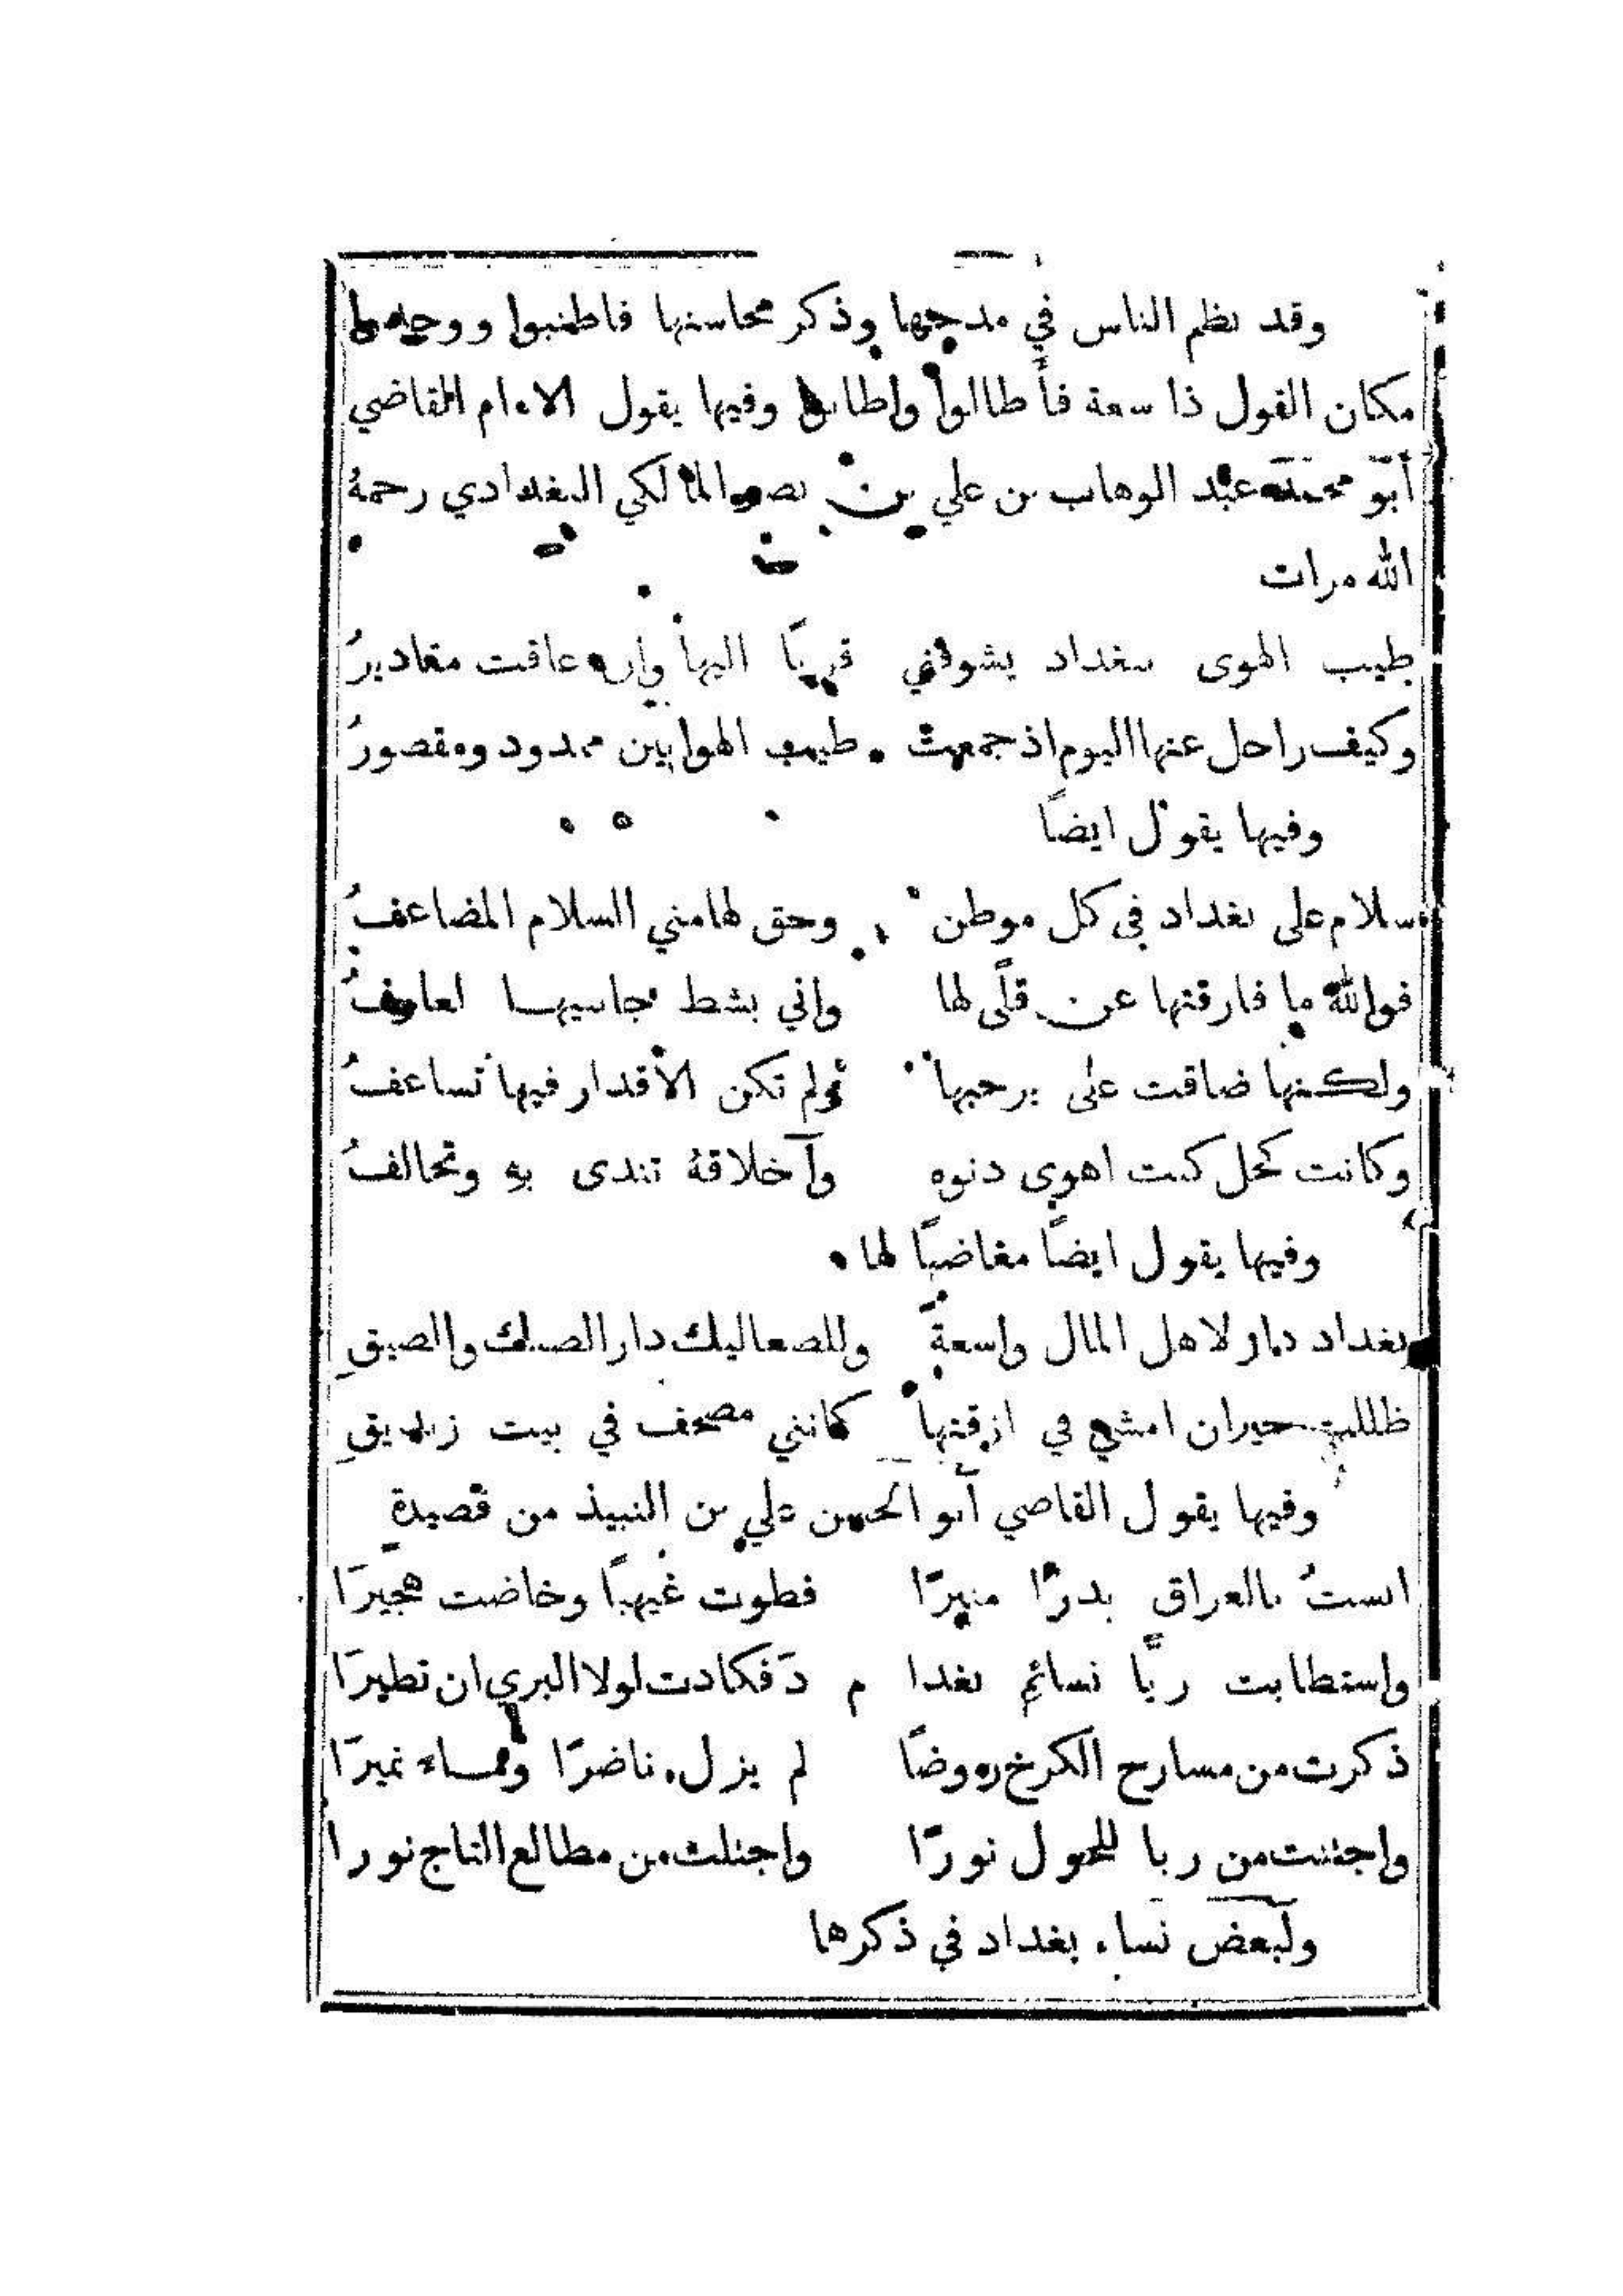 وقد نظم الناس في مدحها وذكر محاسنها فاطنبوا ووجدوا
مكان القول ذا سعة فأطالوا واطابوا وفيها يقول الامام القاضي
أبو محمد عبد الوهاب بن علي بن نصر المالكي البغدادي رحمهُ
الله مرات
طيب الهوى ببغداد يشوقني قربًا اليها وان عاقت مقاديرُ
وكيف راحل عنها اليوم اذ جمعت طيب الهوا بين ممدود ومقصورُ
وفيها يقول ايضًا
سلام على بغداد في كل موطن وحق لها مني السلام المضاعفُ
فوالله ما فارقتها عن قلًى لها واني بشط جانبيها لعارفُ
ولكنها ضاقت على برحبها ولم تكن الأقدار فيها تساعفُ
وكانت كخل كنت اهوى دنوه وأخلاقهُ تندى بهِ وتخالفُ
وفيها يقول ايضًا مغاضبًا لها
بغداد دار لاهل المال واسعةً وللصعاليك دار الضنك والضيقِ
ظللت حيران امشي في ازقتها كانني مصحف في بيت زنديقِ
وفيها يقول القاضي أبو الحسن علي بن النبيذ من قصيدةٍ
انستُ بالعراق بدرًا منيرًا فطوت غيهبًا وخاضت هجيرَا
واستطابت ريًّا نسائم بغدا م دَ فكادت لولا البري ان تطيرَا
ذكرت من مسارح الكرخ روضًا لم يزل ناضرًا وماء نميرَا
واجتنت من ربا المحول نورًا واجتلت من مطالع التاج نورا
ولبعض نساء بغداد في ذكرها